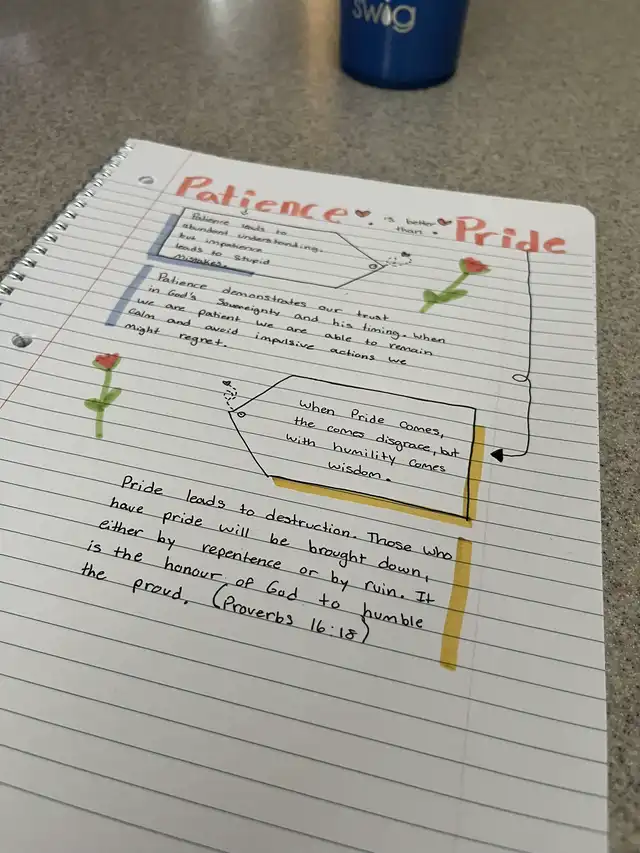 swig
Patience is better than Pride
Patience leads to
abundant understanding.
but impatience
leads to stupid
mistakes.
Patience demonstrates our trust
in God's Sovereignty and his timing. When
we are patient we are able to remain
calm and avoid impulsive actions we
might regret.
When Pride comes,
the comes disgrace, but
with humility comes
wisdom.
Pride leads to destruction. Those who
have pride will be brought down,
either by repentence or by ruin. It
is the honour of God to humble
the proud. (Proverbs 16:18)